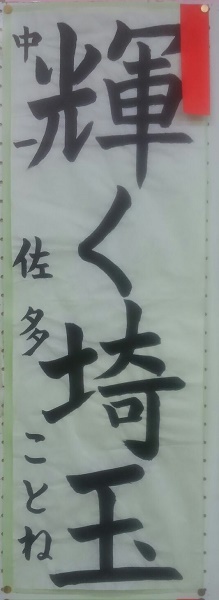 輝く埼玉
中一 佐多ことね